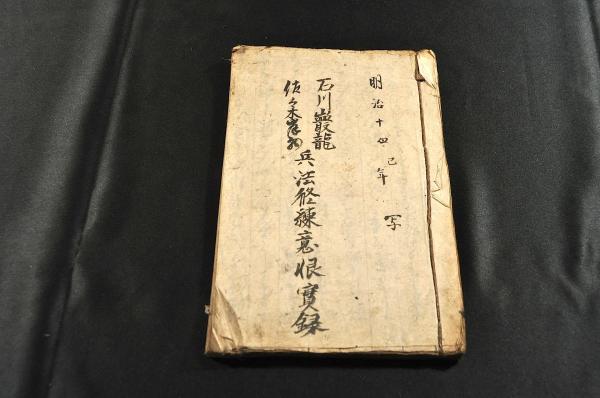 明治十四巳年 写
石川巌龍
佐々木岸柳
兵法修練意恨實録